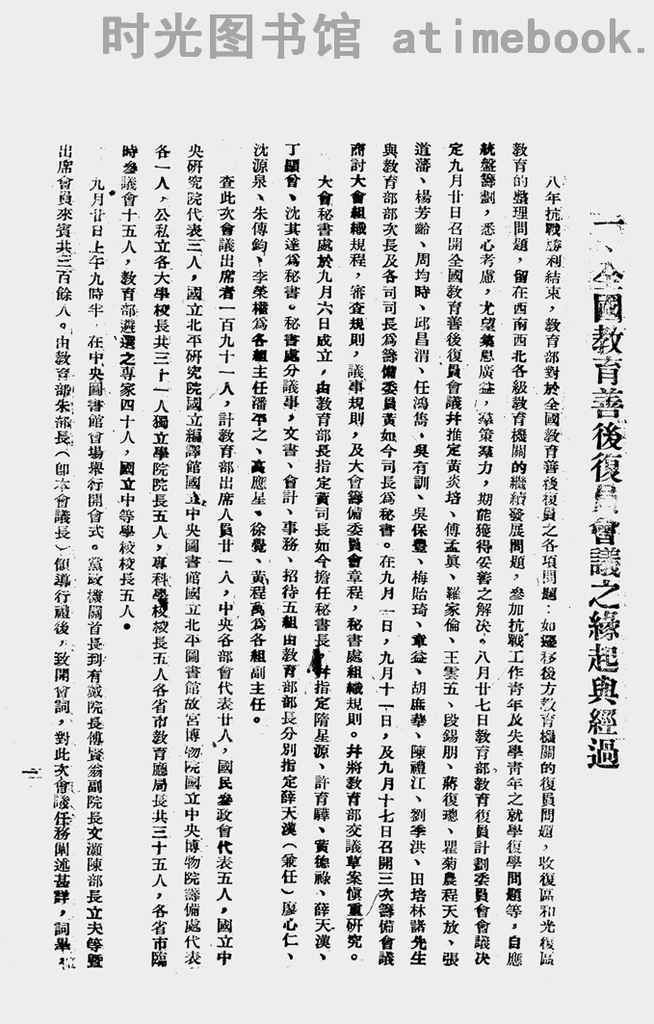 时光图书馆 atimebook.
一、全國教育善後復員會議之緣起與經過
八年抗戰勝利結束，教育部對於全國教育善後復員之各項問題：如遷移後方教育機關的復員問題，收復區和光復區
教育的整理問題，留在西南西北各級教育機關的繼續發展問題，參加抗戰工作青年及失學青年之就學復學問題等，自應
統盤籌劃，悉心考慮，尤望集思廣益，羣策羣力，期能獲得妥善之解決。八月廿七日教育部教育復員計劃委員會會議決
定九月廿日召開全國教育善後復員會議幷推定黃炎培、傅孟眞、羅家倫、王雲五、段錫朋、蔣復璁、瞿菊農程天放、張
道藩、楊芳齡、周均時、邱昌渭、任鴻雋、吳有訓、吳保豐、梅貽琦、章益、胡庶華、陳禮江、劉季洪、田培林諸先生
與教育部部次長及各司司長爲籌備委員黃如今司長爲秘書。在九月一日，九月十一日，及九月十七日召開三次籌備會議
商討大會組織規程，審查規則，議事規則，及大會籌備委員會章程，秘書處組織規則。幷將教育部交議草案愼重研究。
大會秘書處於九月六日成立，由教育部長指定黃司長如今擔任秘書長，幷指定隋星源、許育驊、黃德祿、薛天漢、
丁顯曾、沈其達爲秘書。秘書處分議事，文書、會計、事務、招待五組由教育部部長分別指定薛天漢（兼任）廖心仁、
沈源泉、朱傳鈞、李榮權爲各組主任潘平之、高應星、徐覺、黃程萬爲各組副主任。
查此次會議出席者一百九十一人，計教育部出席人員廿一人，中央各部會代表廿人，國民參政會代表五人，國立中
央研究院代表三人，國立北平研究院國立編譯館國立中央圖書館國立北平圖書館故宮博物院國立中央博物院籌備處代表
各一人，公私立各大學校長共三十一人獨立學院院長五人，專科學校校長五人各省市教育廳局長共三十五人，各省市臨
時參議會十五人，教育部遴選之專家四十人，國立中等學校校長五人。
九月廿日上午九時半，在中央圖書館會場舉行開會式。黨政機關首長到有戴院長傅賢翁副院長文灝陳部長立夫等暨
出席會員來賓共三百餘人。由教育部朱部長（卽本會議長）領導行禮後，致開會詞，對此次會議任務闡述甚詳，詞畢，
一